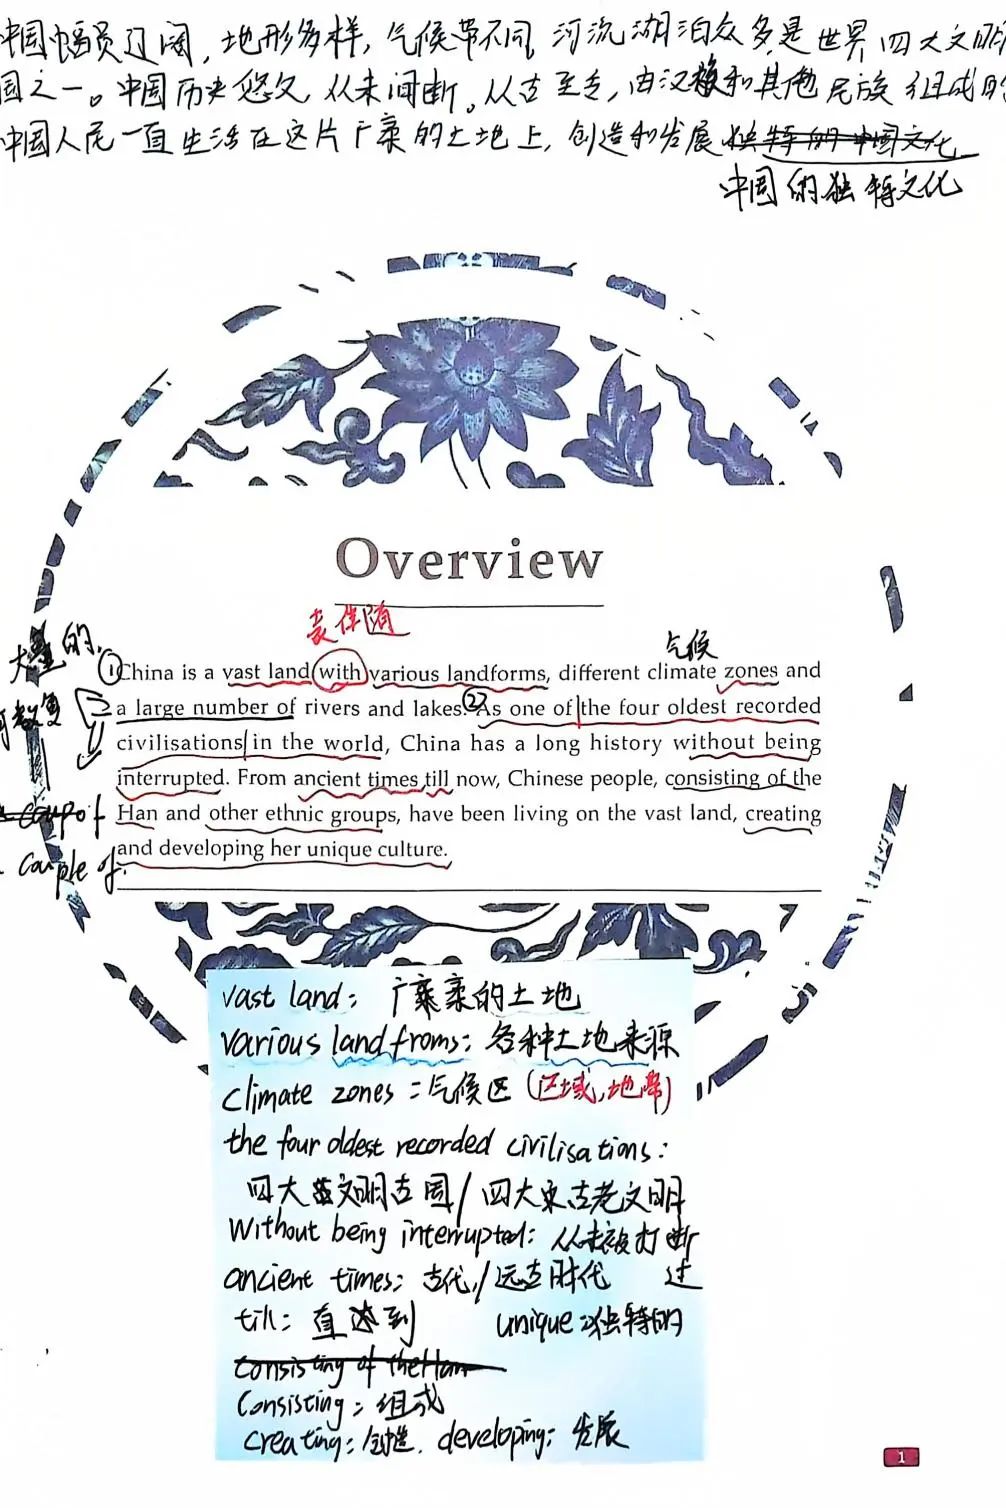 中国幅员辽阔,地形多样,气候带不同,河流湖泊众多是世界四大文明
国之一。中国历史悠久,从未间断。从古至今,由汉族和其他民族组成的
中国人民一直生活在这片广袤的土地上,创造和发展独特的中国文化
中国的独特文化
Overview
表伴随
大量的
气候
①China is a vast land with various landforms, different climate zones and
a large number of rivers and lakes. ②As one of the four oldest recorded
可数复
civilisations in the world, China has a long history without being
interrupted. From ancient times till now, Chinese people, consisting of the
Han and other ethnic groups, have been living on the vast land, creating
and developing her unique culture.
couple of
vast land: 广袤的土地
various land froms: 各种土地来源
climate zones: 气候区 (区域,地带)
the four oldest recorded civilisations:
四大文明古国/四大古老文明
without being interrupted: 从未被打断过
ancient times: 古代/远古时代
till: 直到 unique: 独特的
consisting of the Han
Consisting: 组成
creating: 创造. developing: 发展
1